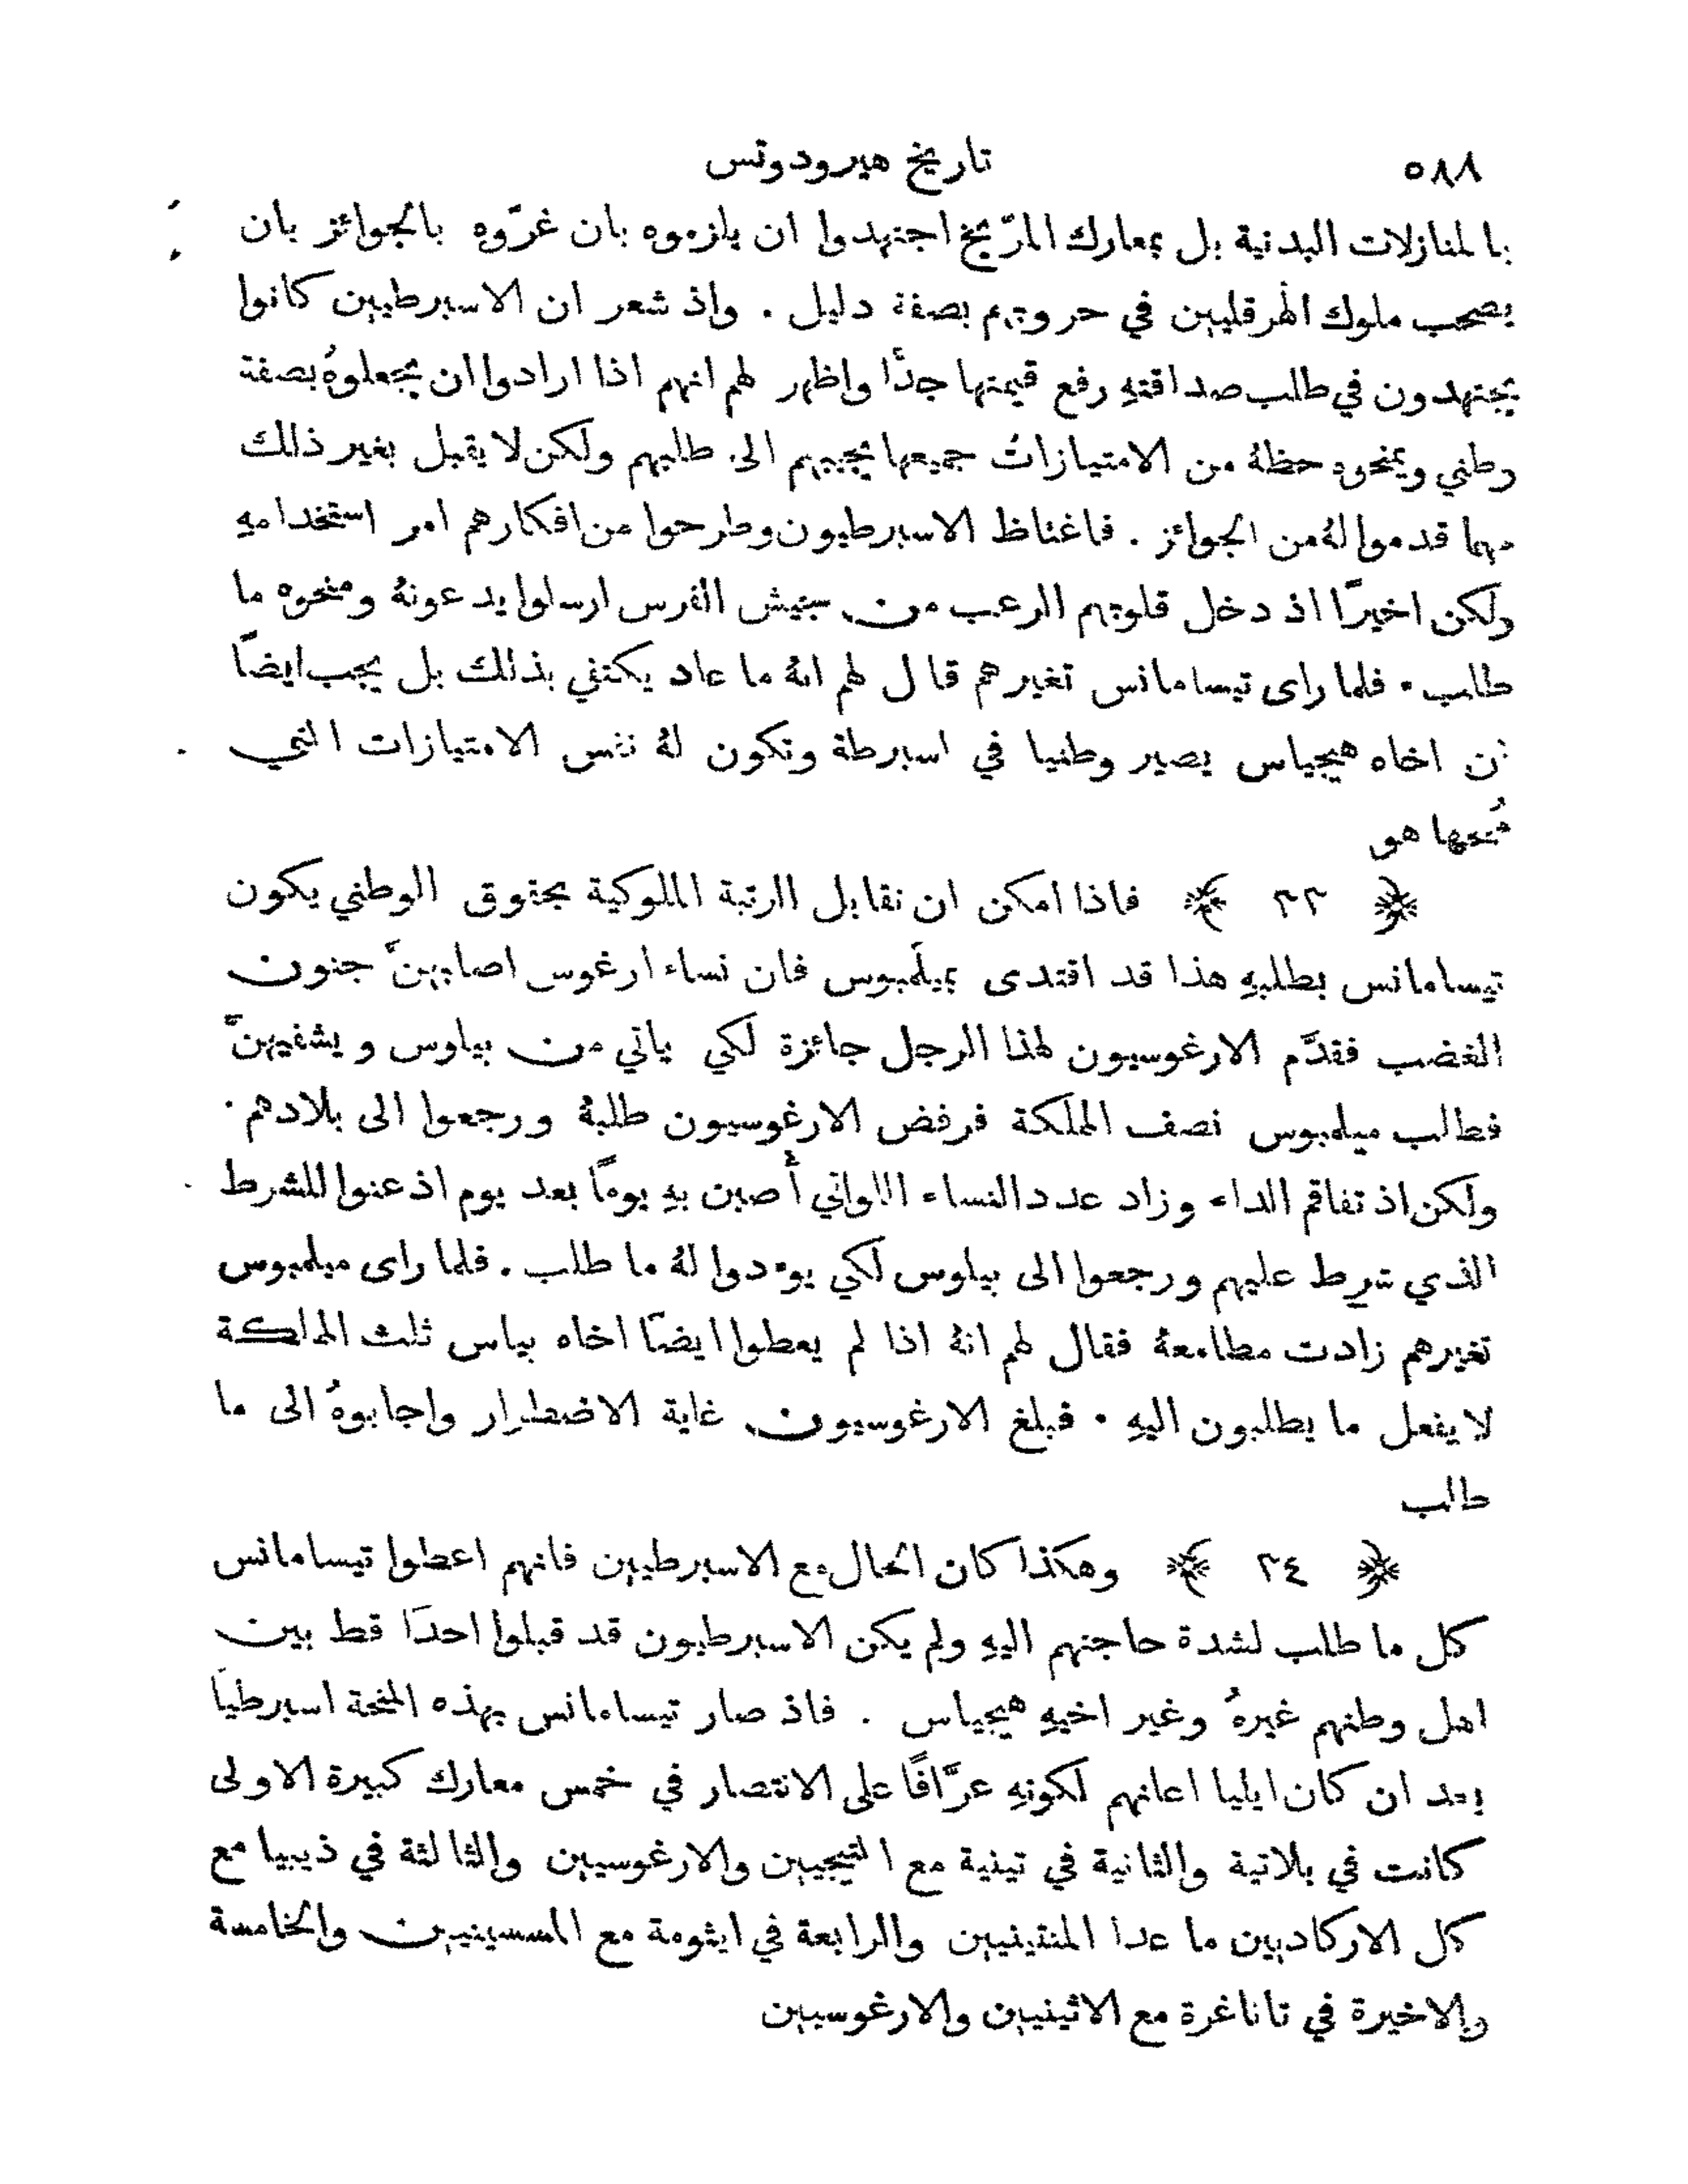 ٥٨٨ تاريخ هيرودوتس
بالمنازلات البدنية بل بمعارك المرّيخ اجتهدوا ان يلزموه بان غرّوه بالجوائز بان
يصحب ملوك الهرقليين في حروبهم بصفة دليل . واذ شعر ان الاسبرطيين كانوا
يجتهدون في طلب صداقتهِ رفع قيمتها جدًّا واظهر لهم انهم اذا ارادوا ان يجعلوهُ بصفة
وطني ويمنحوه حظهُ من الامتيازات جميعها يجيبهم الى طلبهم ولكن لا يقبل بغير ذلك
مهما قدموا لهُ من الجوائز . فاغتاظ الاسبرطيون وطرحوا من افكارهم امر استخدامهِ
ولكن اخيرًا اذ دخل قلوبهم الرعب من جيش الفرس ارسلوا يدعونهُ ومنحوه ما
طلب . فلما راى تيسامانس تغيرهم قال لهم انهُ ما عاد يكتفي بذلك بل يجب ايضًا
ان اخاه هيجياس يصير وطنيا في اسبرطة وتكون لهُ نفس الامتيازات التي
مُنحها هو
﴿ ٣٣ ﴾ فاذا امكن ان نقابل الرتبة الملوكية بحقوق الوطني يكون
تيسامانس بطلبهِ هذا قد اقتدى بميلَمبوس فان نساء ارغوس اصابهنَّ جنون
الغضب فقدَّم الارغوسيون لهذا الرجل جائزة لكي ياتي من بيلوس ويشفيهنَّ
فطلب ميلمبوس نصف المملكة فرفض الارغوسيون طلبهُ ورجعوا الى بلادهم .
ولكن اذ تفاقم الداء وزاد عدد النساء اللواتي أُصبن بهِ يومًا بعد يوم اذعنوا للشرط
الذي شرط عليهم ورجعوا الى بيلوس لكي يوءدوا لهُ ما طلب . فلما راى ميلمبوس
تغيرهم زادت مطامعهُ فقال لهم انهُ اذا لم يعطوا ايضًا اخاه بياس ثلث المملكة
لا يفعل ما يطلبون اليهِ . فبلغ الارغوسيون غاية الاضطرار واجابوهُ الى ما
طلب
﴿ ٣٤ ﴾ وهكذا كان الحال مع الاسبرطيين فانهم اعطوا تيسامانس
كل ما طلب لشدة حاجتهم اليهِ ولم يكن الاسبرطيون قد قبلوا احدًا قط بين
اهل وطنهم غيرهُ وغير اخيهِ هيجياس . فاذ صار تيسامانس بهذه المنحة اسبرطيًا
بعد ان كان ايليا اعانهم لكونهِ عرَّافًا على الانتصار في خمس معارك كبيرة الاولى
كانت في بلاتية والثانية في تيغية مع التيجيين والارغوسيين والثالثة في ذيبيا مع
كل الاركاديين ما عدا المنتينيين والرابعة في ايثومة مع المسينيين والخامسة
والاخيرة في تاناغرة مع الاثينيين والارغوسيين